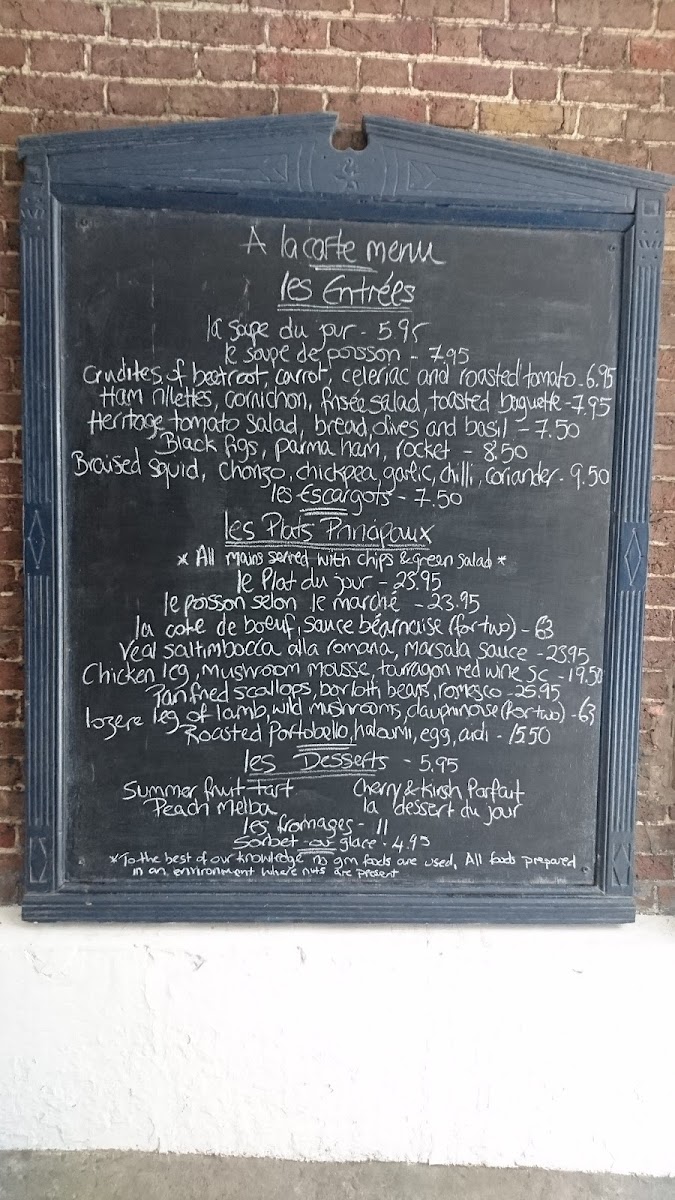 A la carte menu
les Entrées
la soupe du jour - 5.95
le soupe de poisson - 7.95
Crudites of beetroot, carrot, celeriac and roasted tomato - 6.95
Ham rillettes, cornichon, frisée salad, toasted baguette - 7.95
Heritage tomato salad, bread, olives and basil - 7.50
Black figs, parma ham, rocket - 8.50
Braised squid, chorizo, chickpea, garlic, chilli, coriander - 9.50
les Escargots - 7.50
les Plats Principaux
* All mains served with chips & green salad *
le Plat du jour - 23.95
le poisson selon le marché - 23.95
la cote de boeuf, sauce béarnaise (for two) - 63
Veal saltimbocca alla romana, marsala sauce - 23.95
Chicken leg, mushroom mousse, tarragon red wine sc - 19.50
Pan fried scallops, borlotti beans, romesco - 25.95
lozere leg of lamb, wild mushrooms, dauphinoise (for two) - 63
Roasted Portobello, haloumi, egg, - 15.50
les Desserts - 5.95
Summer fruit tart Cherry & Kirsh Parfait
Peach Melba la dessert du jour
les fromages - 11
Sorbet ou glace - 4.95
*To the best of our knowledge no gm foods are used. All foods prepared
in an environment where nuts are present